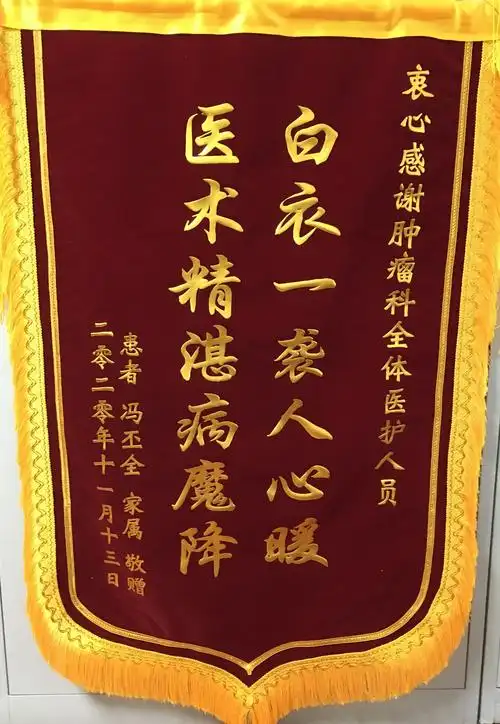 衷心感谢肿瘤科全体医护人员
白衣一袭人心暖
医术精湛病魔降
患者 冯丕全 家属 敬赠
二零二零年十一月十三日